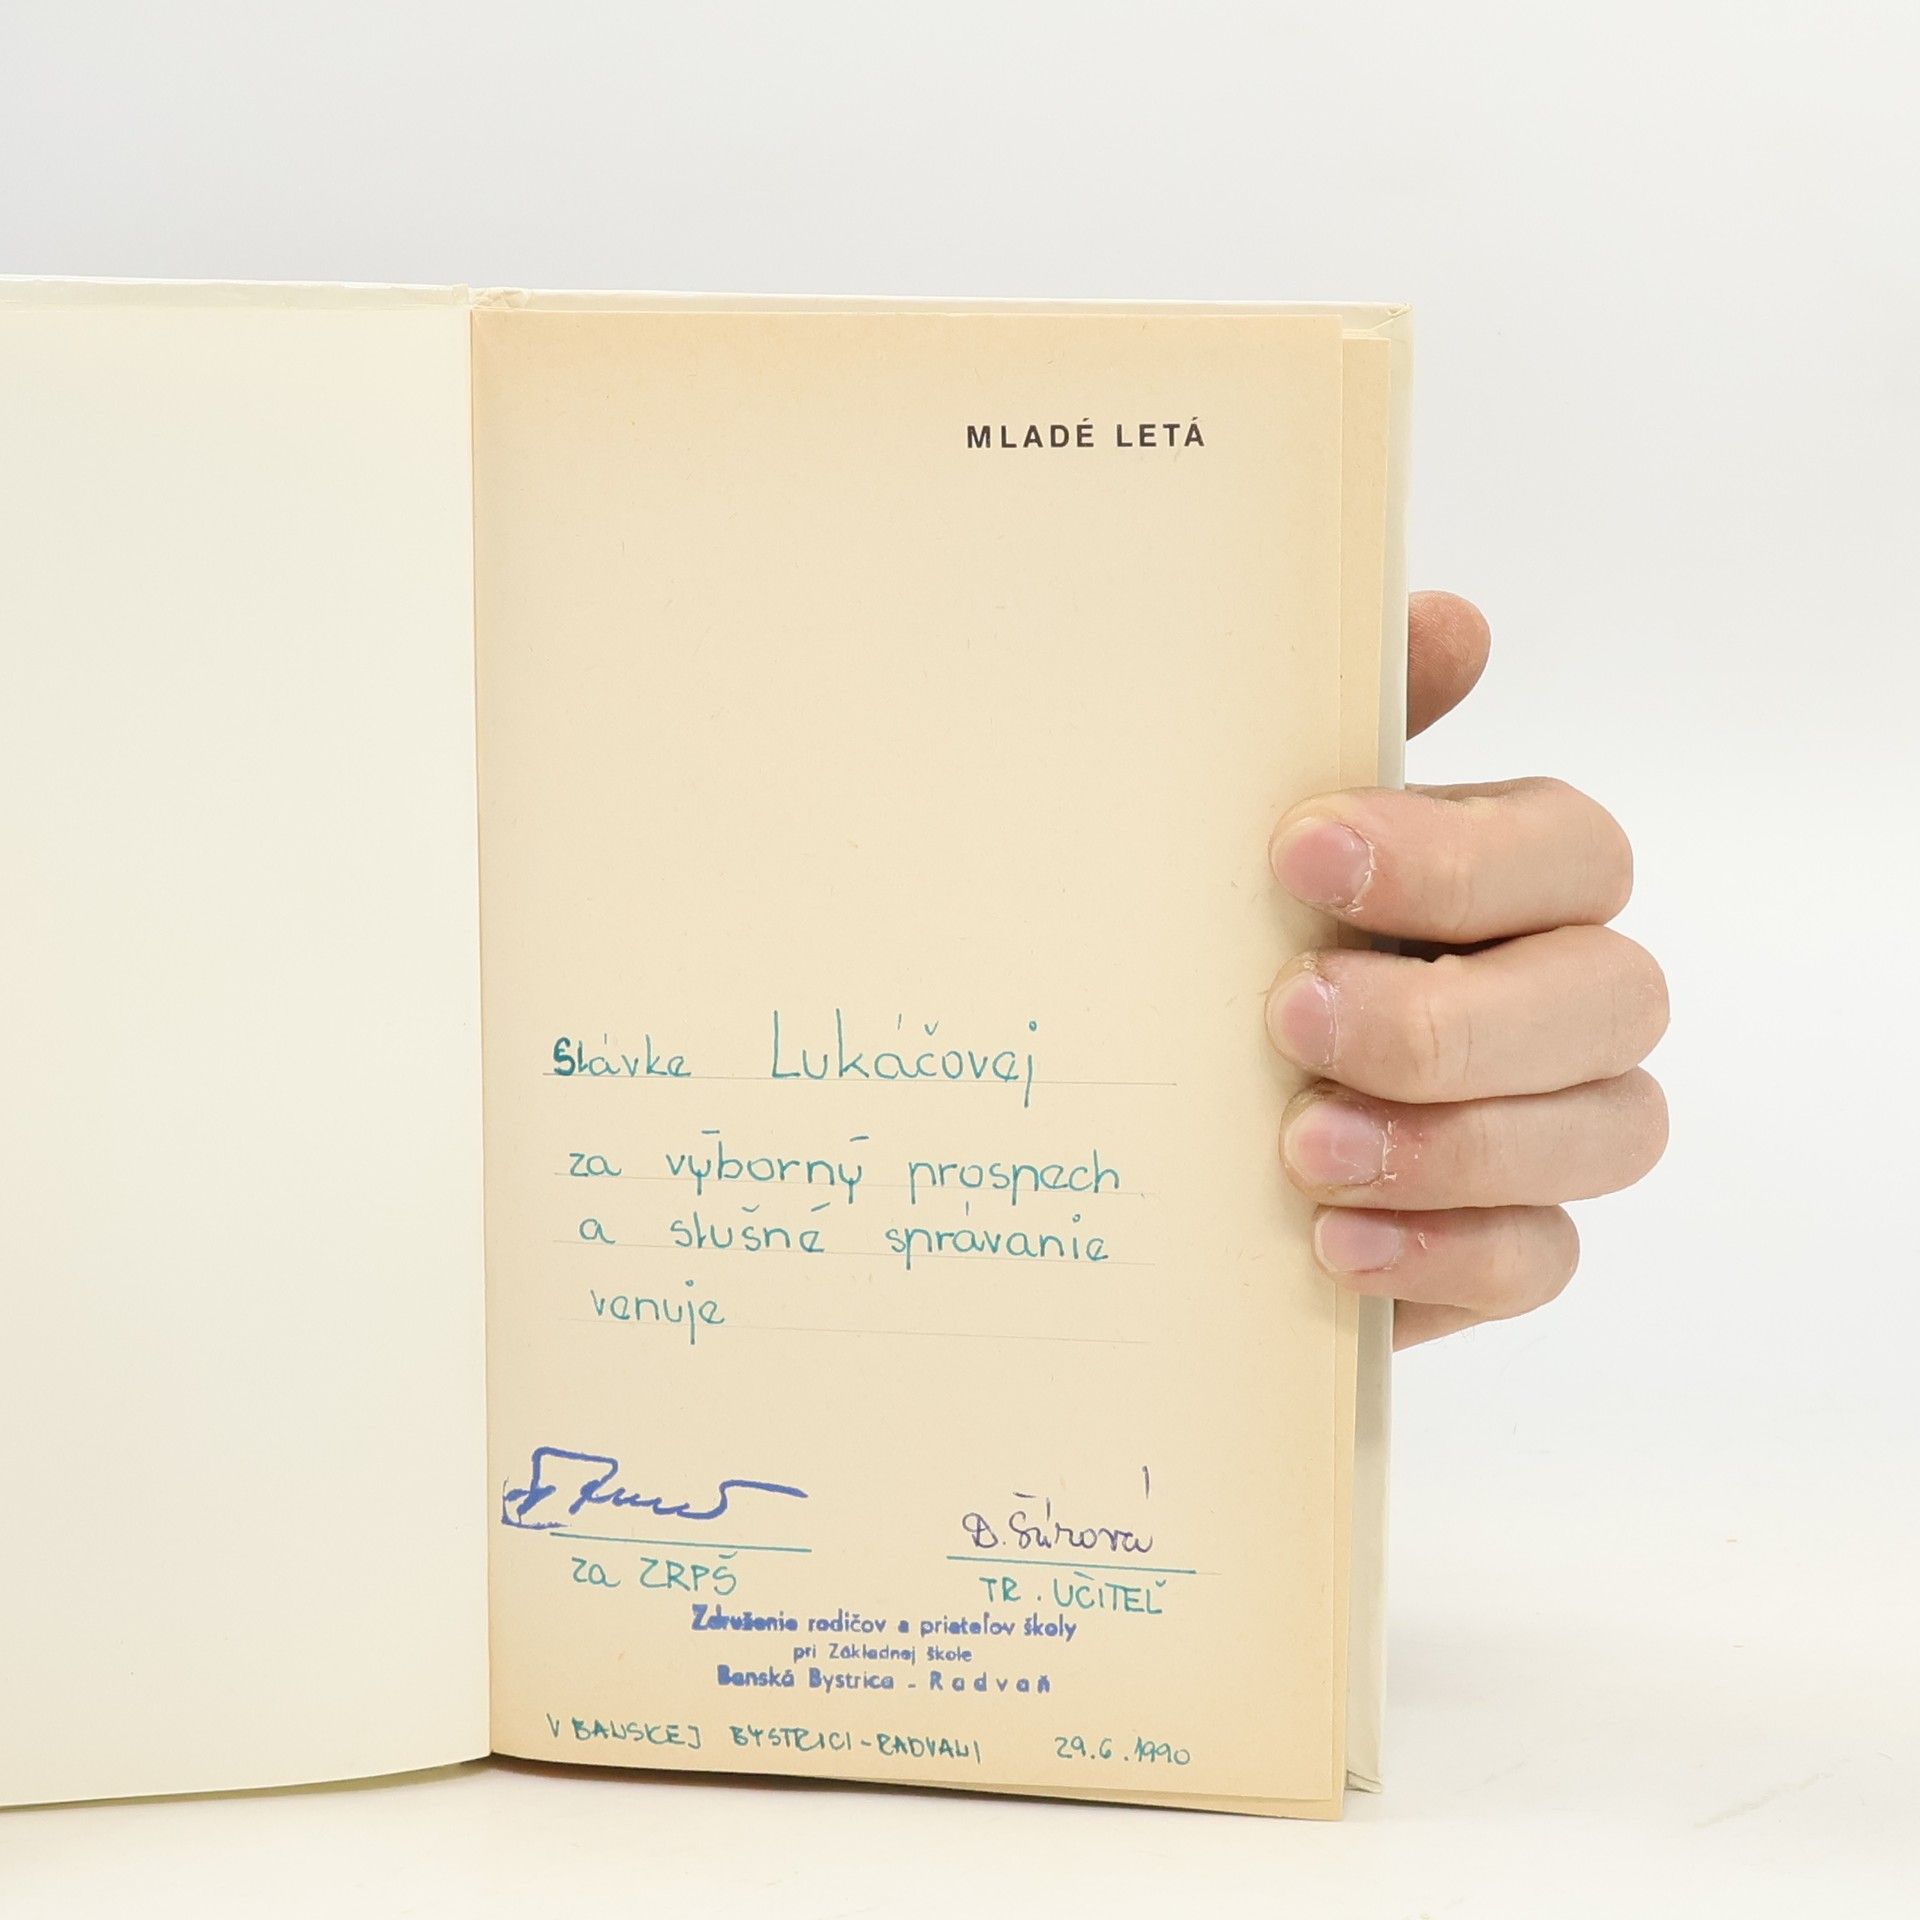 MLADÉ LETÁ
Slávke Lukáčovej
za výborný prospech
a slušné správanie
venuje
D. Šúrová
za ZRPŠ
TR. UČITEĽ
Združenie rodičov a priateľov školy
pri Základnej škole
Banská Bystrica - Radvaň
V BANSKEJ BYSTRICI-RADVANI 29.6.1990